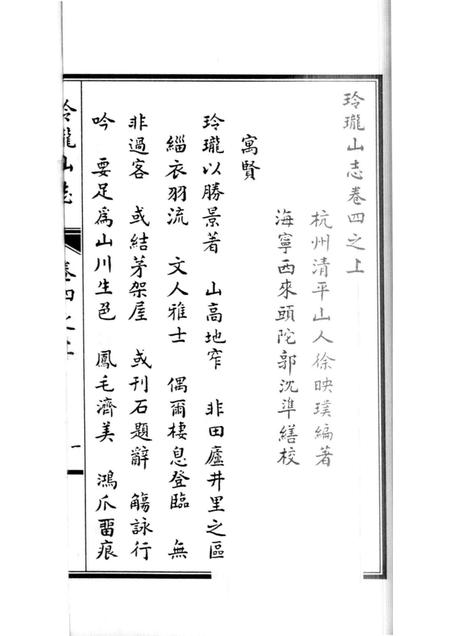 玲瓏山志卷四之上
杭州清平山人徐映璞編著
海寧西來頭陀郭沈準繕校
寓賢
玲瓏以勝景著　山高地窄　非田廬井里之區
緇衣羽流　文人雅士　偶爾棲息登臨　無
非過客　或結茅架屋　或刊石題辭　觴詠行
吟　要足爲山川生色　鳳毛濟美　鴻爪留痕
玲瓏山志
卷四之上
一